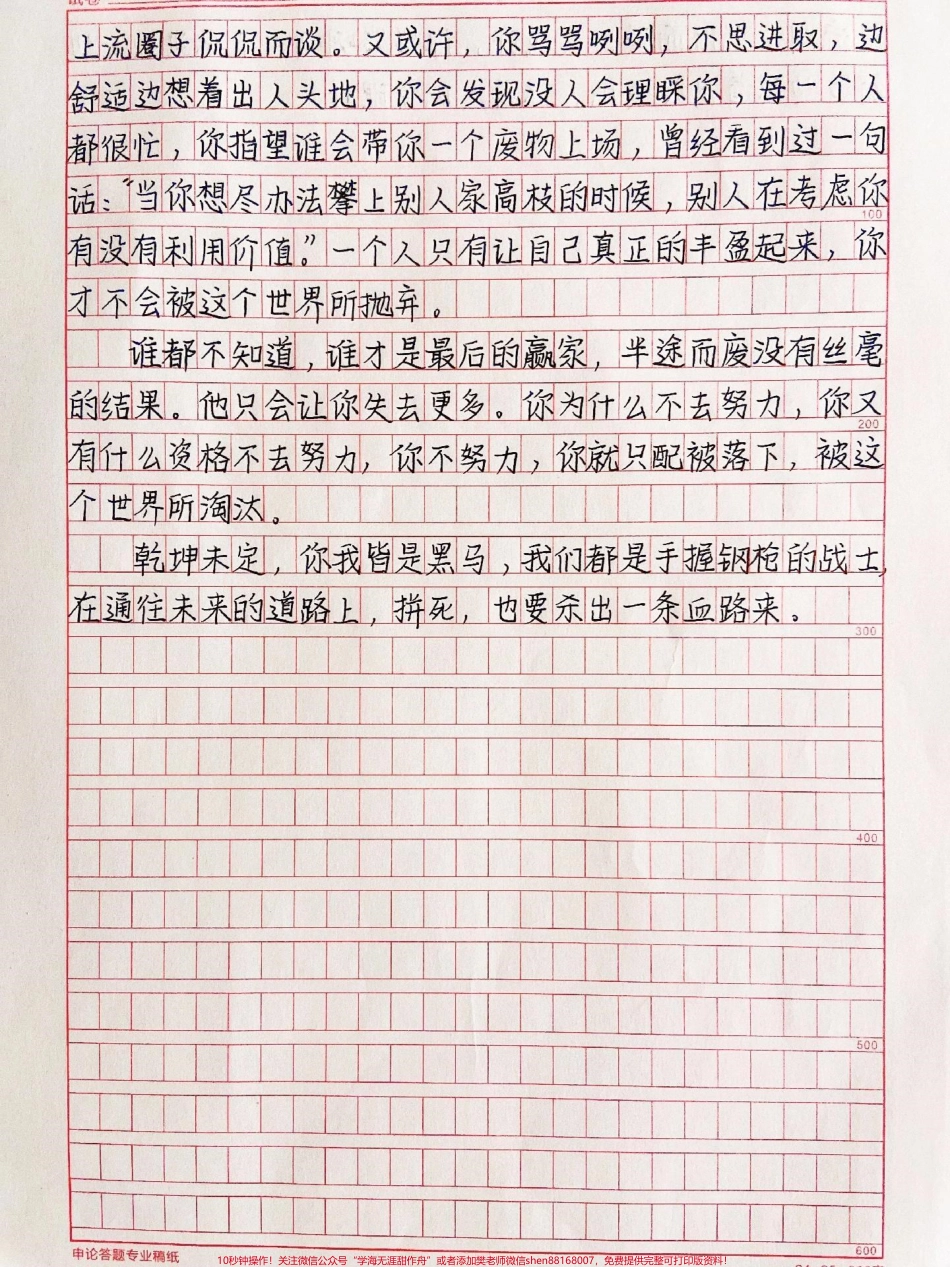 上流圈子侃侃而谈。又或许，你骂骂咧咧，不思进取，边
舒适边想着出人头地，你会发现没人会理睬你，每一个人
都很忙，你指望谁会带你一个废物上场，曾经看到过一句
话：“当你想尽办法攀上别人家高枝的时候，别人在考虑你
100
有没有利用价值。”一个人只有让自己真正的丰盈起来，你
才不会被这个世界所抛弃。
谁都不知道，谁才是最后的赢家，半途而废没有丝毫
的结果。他只会让你失去更多。你为什么不去努力，你又
200
有什么资格不去努力，你不努力，你就只配被落下，被这
个世界所淘汰。
乾坤未定，你我皆是黑马，我们都是手握钢枪的战士，
在通往未来的道路上，拼死，也要杀出一条血路来。
300
400
500
600
申论答题专业稿纸
10秒钟操作！关注微信公众号“学海无涯甜作舟”或者添加樊老师微信shen88168007，免费提供完整可打印版资料！